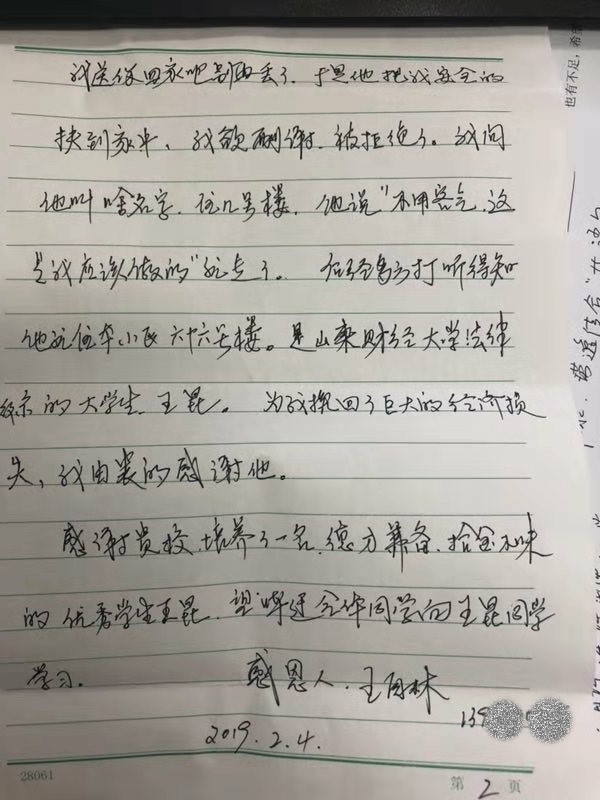 我送你回家吧别再丢了，于是他把我安全的
扶到家中，我欲酬谢，被拒绝了。我问
他叫啥名字，住几号楼，他说"不用客气，这
是我应该做的"就走了。 后经多方打听得知
他就住本小区六十六号楼。是山东财经大学法律
的大学生王昆。 为我挽回了巨大的经济损
失，我由衷的感谢他。
感谢贵校，培养了一名，德才兼备，拾金不昧
的优秀学生王昆，望 全体同学向王昆同学
学习。
感恩人：王 林
139
2019.2.4.
28061
第 2 页
也有不足，希